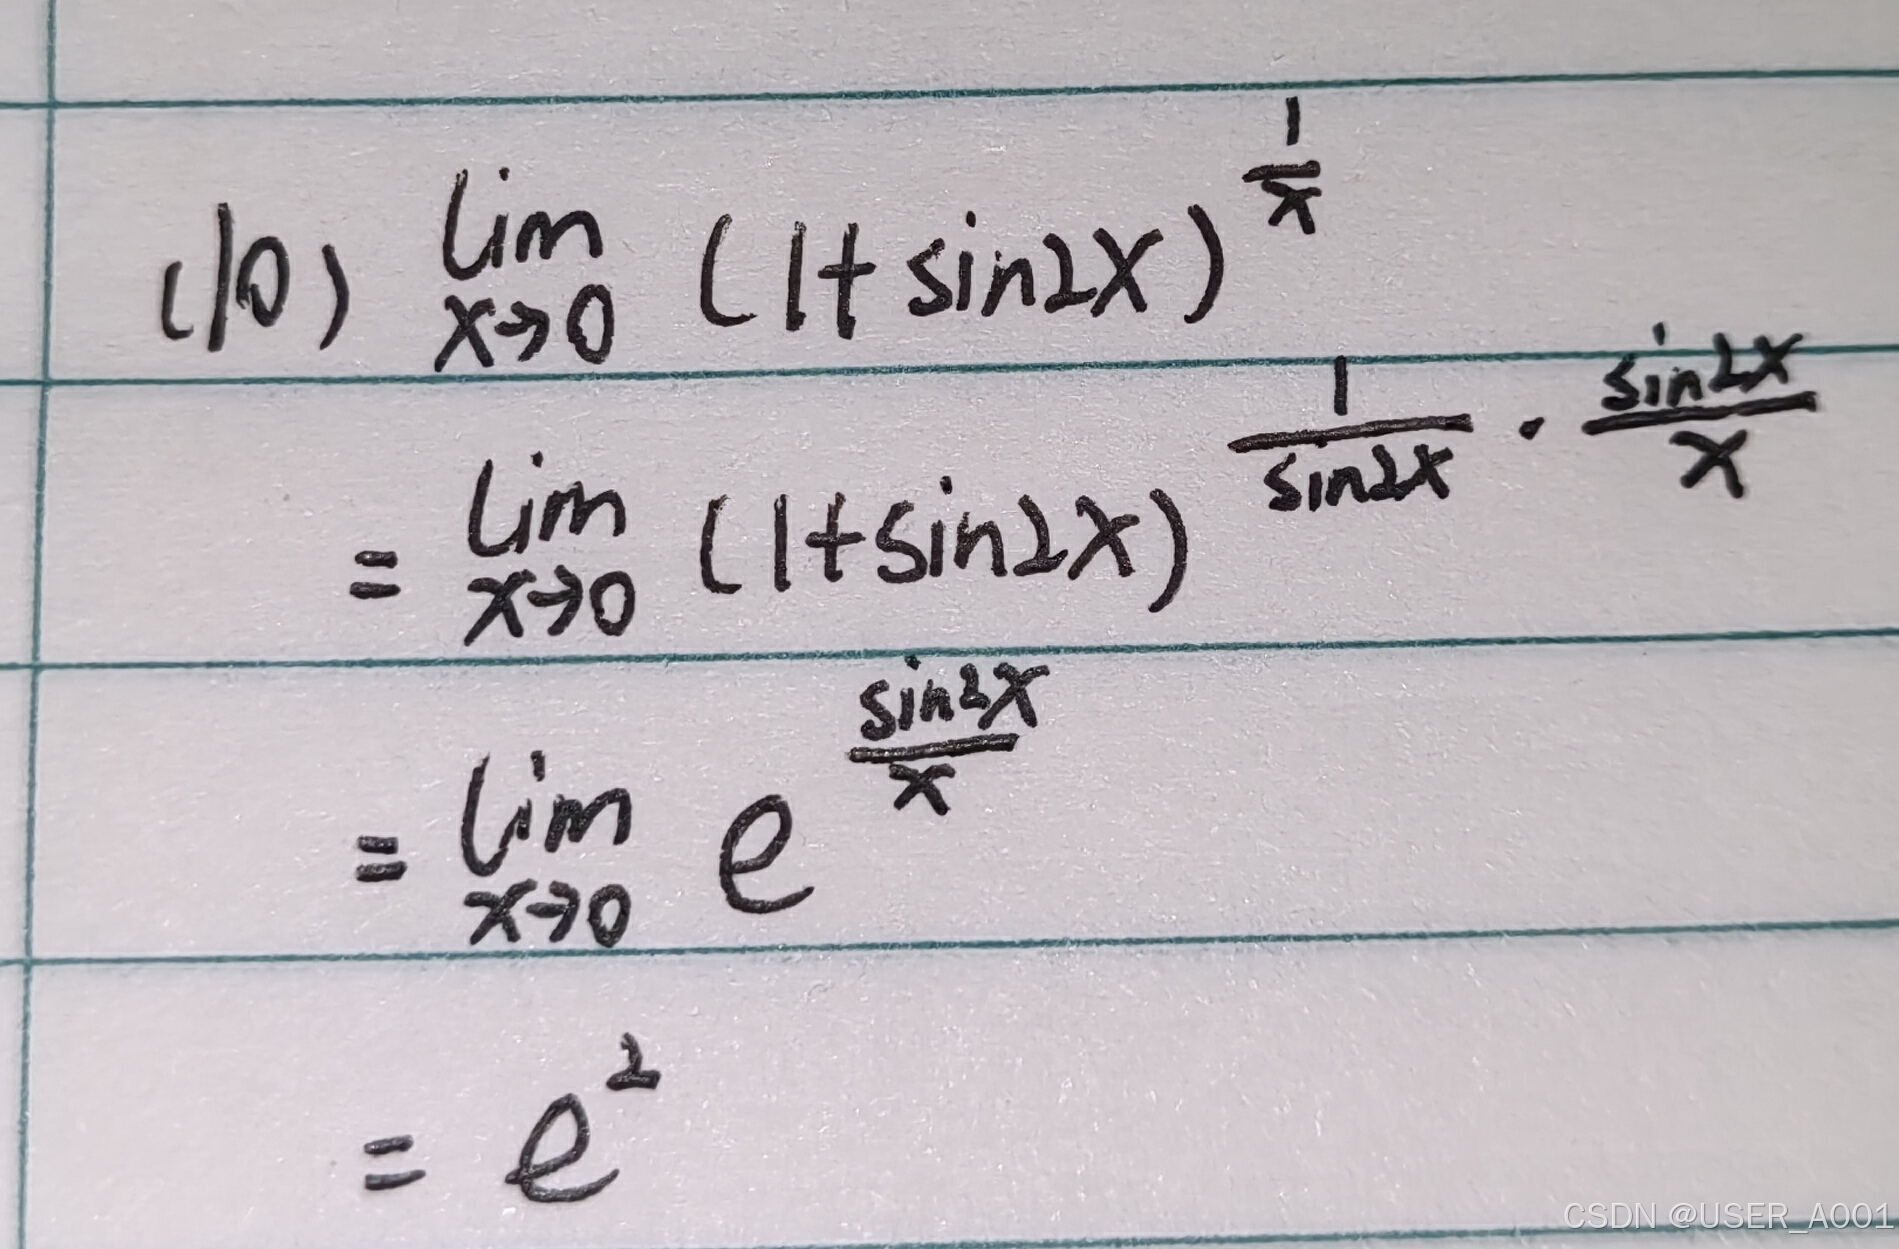 (10) lim x→0 (1+sin2x)^(1/x)
= lim x→0 (1+sin2x)^(1/sin2x · sin2x/x)
= lim x→0 e^(sin2x/x)
= e^2
CSDN @USER_A001